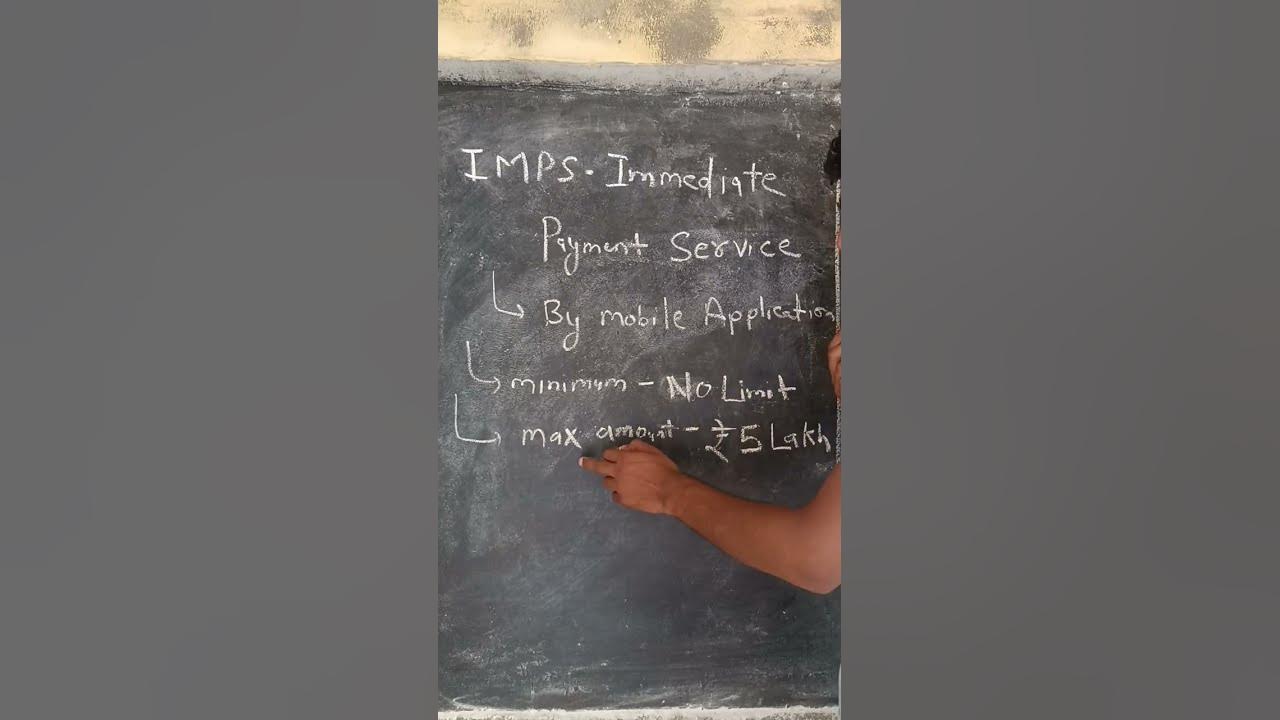 IMPS. Immediate
Payment Service
By mobile Application
minimum - No Limit
max amount - ₹5 Lakh